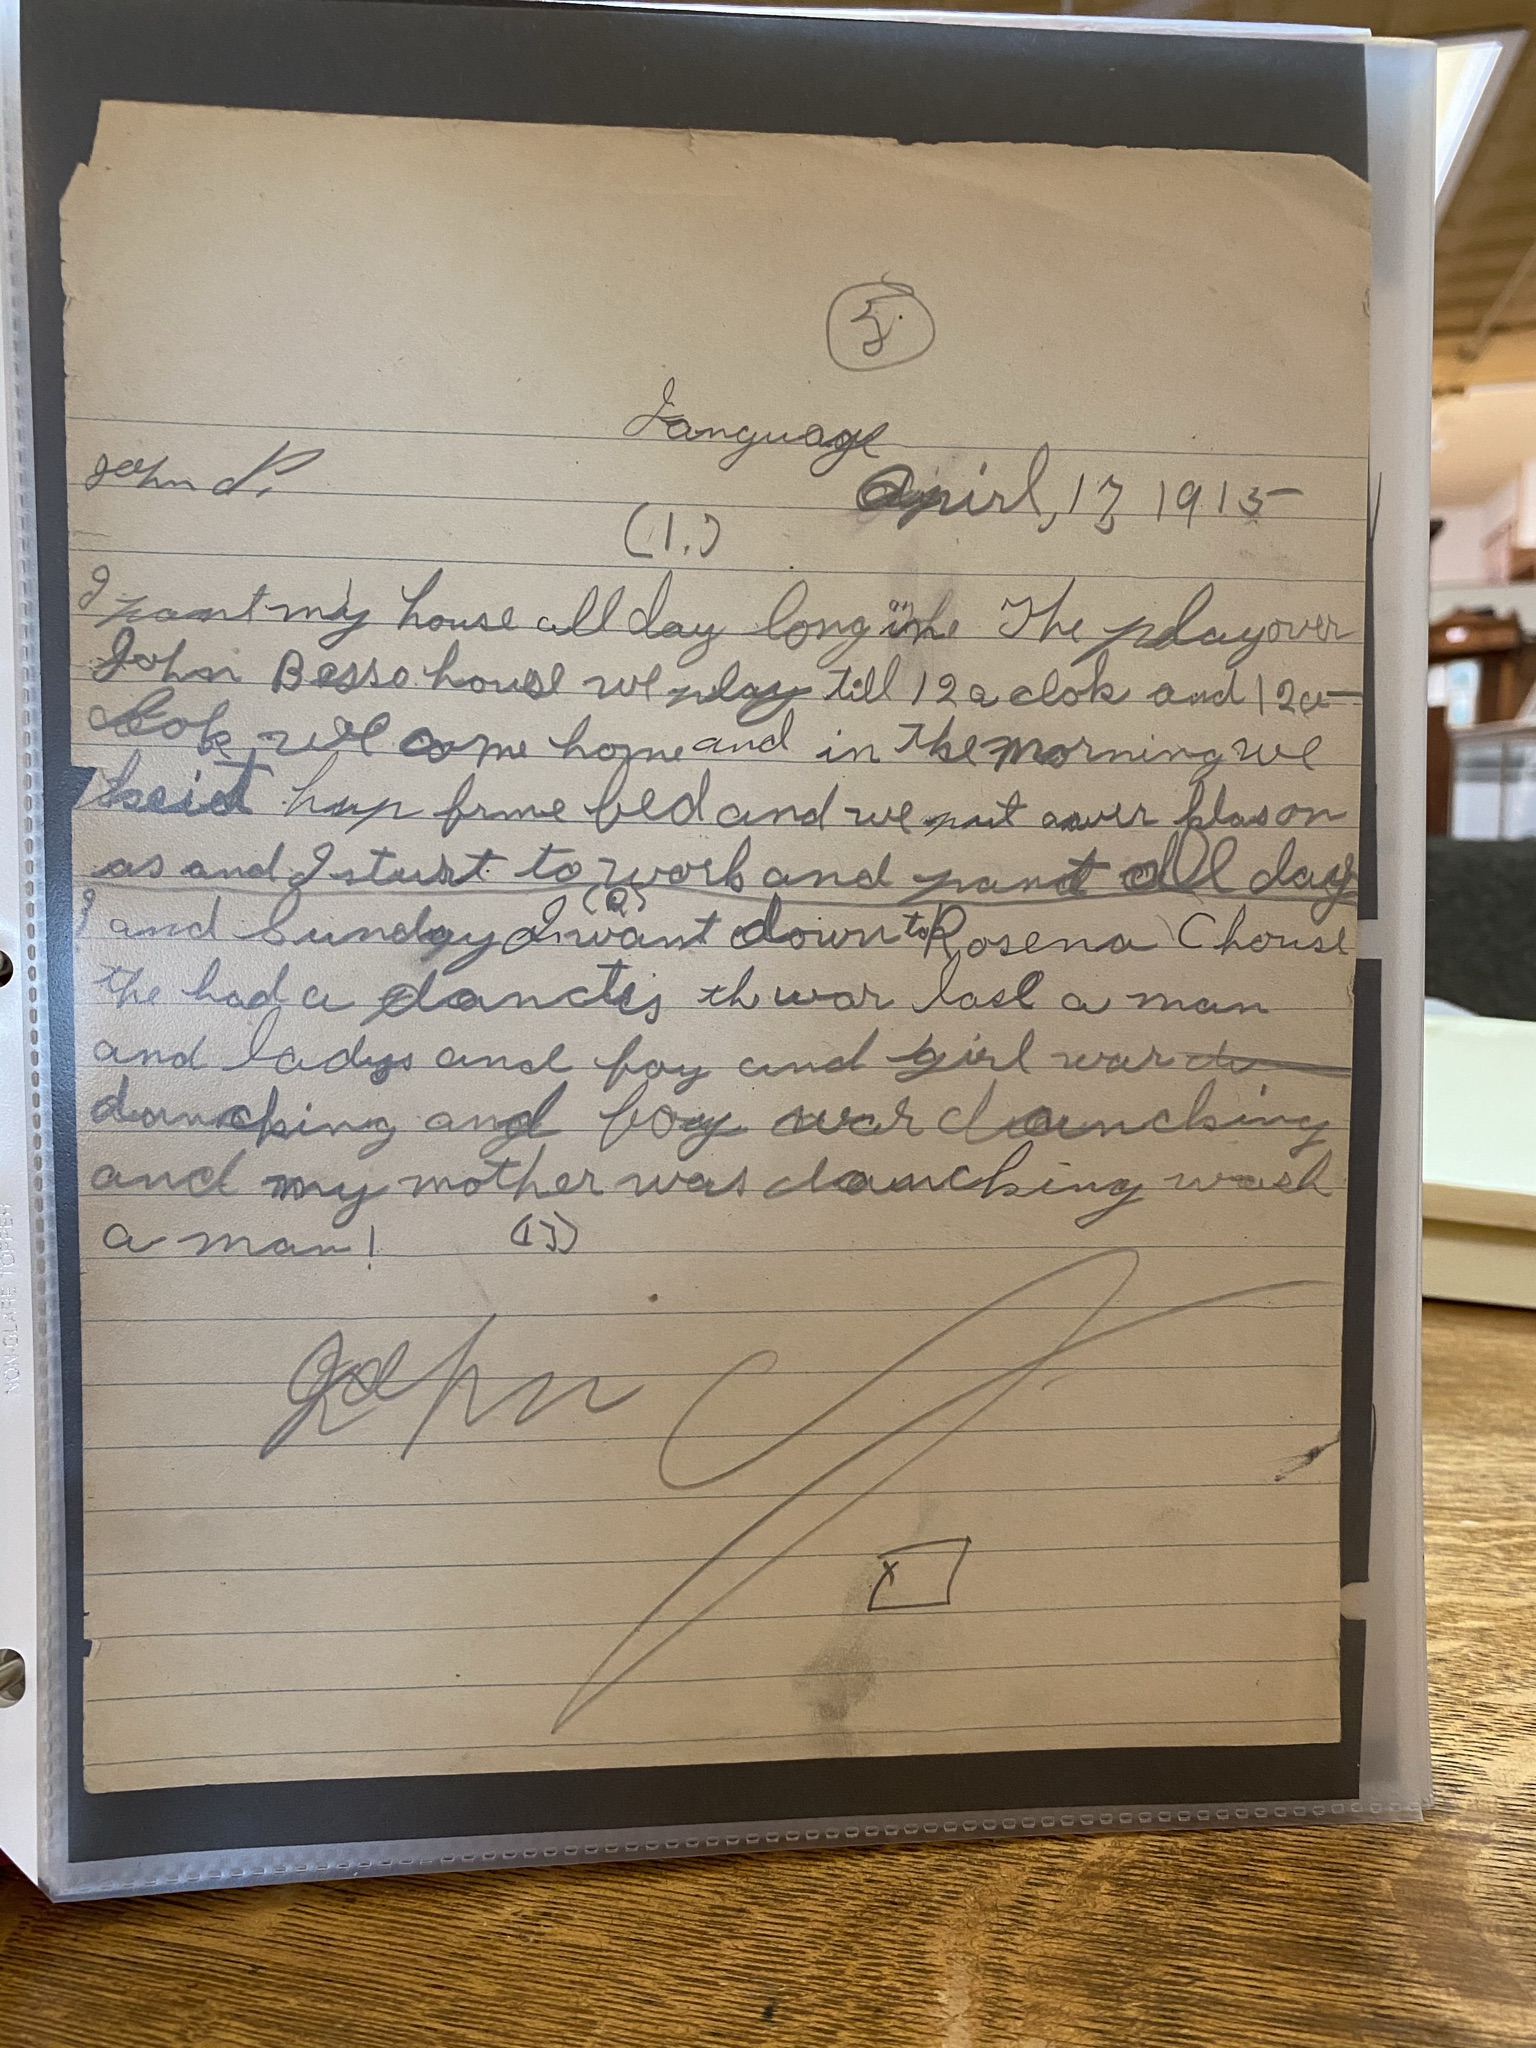 5.
Language
John P.
Apirl, 17 1915
(1.)
I pant my house all day long The play over
John Besso house we play till 12 a clok and 12 a
clok we come home and in the morning we
hup frme bed and we put awer klos on
as and I sturt to work and pant all day
(2)
I and Sunday I want down to Rosena C house
the had a th war last a man
and ladys and boy and girl war
danching and boy war dounching
and my mother was daunching wash
a man!
John
X
NON-GLARE TOPPER